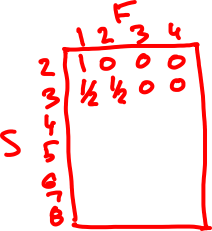 F
1 2 3 4
2 1 0 0 0
3 ½ ½ 0 0
4
S 5
6
7
8